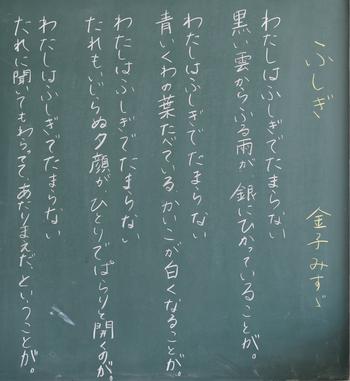 ふしぎ
金子みすゞ
わたしはふしぎでたまらない
黒い雲からふる雨が 銀にひかっていることが。
わたしはふしぎでたまらない
青いくわの葉たべている かいこが白くなることが。
わたしはふしぎでたまらない
たれもいじらぬ夕顔が ひとりでぱらりと開くのが。
わたしはふしぎでたまらない
たれに聞いてもわらってて あたりまえだ、ということが。